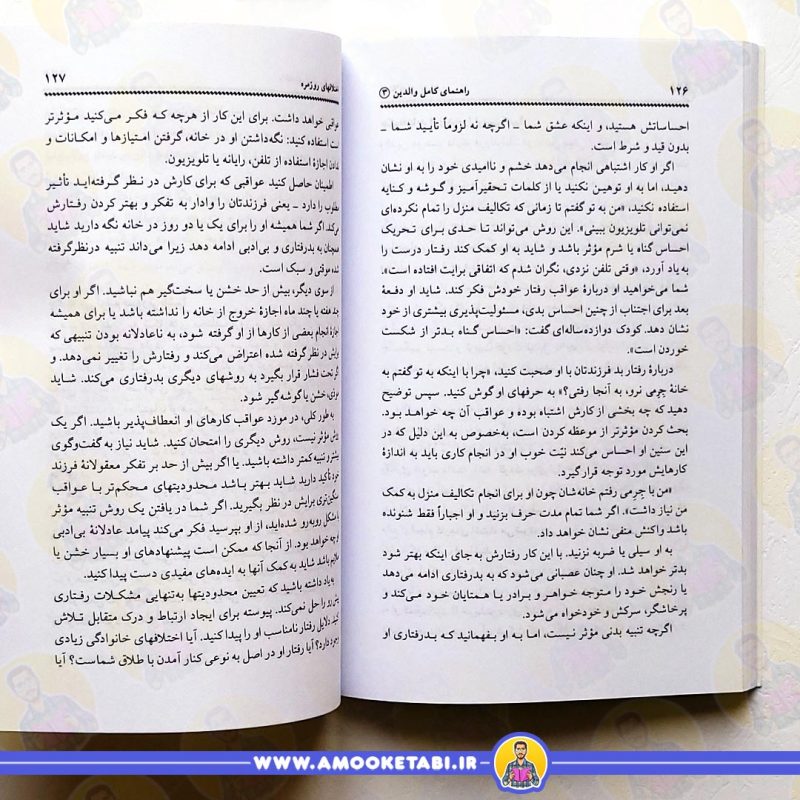 ۱۲۶ راهنمای کامل والدین ۳
احساساتش هستید، و اینکه عشق شما ـ اگرچه نه لزوماً تأیید شما ـ
بدون قید و شرط است.
اگر او کار اشتباهی انجام می‌دهد خشم و ناامیدی خود را به او نشان
دهید، اما به او توهین نکنید یا از کلمات تحقیرآمیز و گوشه و کنایه
استفاده نکنید، «من به تو گفتم تا زمانی که تکالیف منزل را تمام نکرده‌ای
نمی‌توانی تلویزیون ببینی». این روش می‌تواند تا حدی برای تحریک
احساس گناه یا شرم مؤثر باشد و شاید به او کمک کند رفتار درست را
به یاد آورد، «وقتی تلفن نزدی، نگران شدم که اتفاقی برایت افتاده است».
شما می‌خواهید او دربارهٔ عواقب رفتار خودش فکر کند. شاید او دفعهٔ
بعد برای اجتناب از چنین احساس بدی، مسئولیت‌پذیری بیشتری از خود
نشان دهد. کودک دوازده ساله‌ای گفت: «احساس گناه بدتر از شکست
خوردن است».
دربارهٔ رفتار بد فرزندتان با او صحبت کنید، «چرا با اینکه به تو گفتم به
خانهٔ جرمی نرو، به آنجا رفتی؟» به حرفهای او گوش کنید. سپس توضیح
دهید که چه بخشی از کارش اشتباه بوده و عواقب آن چه خواهد بود.
بحث کردن مؤثرتر از موعظه کردن است، به‌خصوص به این دلیل که در
این سنین او احساس می‌کند نیّت خوب او در انجام کاری باید به اندازهٔ
کارهایش مورد توجه قرار گیرد.
«من با جرمی رفتم خانه‌شان چون او برای انجام تکالیف منزل به کمک
من نیاز داشت». اگر شما تمام مدت حرف بزنید و او اجباراً فقط شنونده
باشد واکنش منفی نشان خواهد داد.
به او سیلی یا ضربه نزنید. با این کار رفتارش به‌جای اینکه بهتر شود
بدتر خواهد شد. او چنان عصبانی می‌شود که به بدرفتاری ادامه می‌دهد
یا رنجش خود را متوجه خواهر و برادر یا همتایان خود می‌کند و
پرخاشگر، سرکش و خودخواه می‌شود.
اگرچه تنبیه بدنی مؤثر نیست، اما به او بفهمانید که بدرفتاری او
اختلافهای روزمره ۱۲۷
عواقبی خواهد داشت. برای این کار از هرچه که فکر می‌کنید مؤثرتر
است استفاده کنید: نگه‌داشتن او در خانه، گرفتن امتیازها و امکانات و
ندادن اجازهٔ استفاده از تلفن، رایانه یا تلویزیون.
اطمینان حاصل کنید عواقبی که برای کارش در نظر گرفته‌اید تأثیر
مطلوب را دارد ـ یعنی فرزندتان را وادار به تفکر و بهتر کردن رفتارش
می‌کند. اگر شما همیشه او را برای یک یا دو روز در خانه نگه دارید شاید
همچنان به بدرفتاری و بی‌ادبی ادامه دهد زیرا می‌داند تنبیه درنظرگرفته
شده موقتی و سبک است.
از سوی دیگر، بیش از حد خشن یا سخت‌گیر هم نباشید. اگر او برای
چند هفته یا چند ماه اجازهٔ خروج از خانه را نداشته باشد یا برای همیشه
اجازهٔ انجام بعضی از کارها از او گرفته شود، به ناعادلانه بودن تنبیهی که
برایش در نظر گرفته شده اعتراض می‌کند و رفتارش را تغییر نمی‌دهد. و
اگر تحت فشار قرار بگیرد به روشهای دیگری بدرفتاری می‌کند. شاید
موذی، خشن یا گوشه‌گیر شود.
به طور کلی، در مورد عواقب کارهای او انعطاف‌پذیر باشید. اگر یک
روش مؤثر نیست، روش دیگری را امتحان کنید. شاید نیاز به گفت‌وگوی
بیشتر و تنبیه کمتر داشته باشید. یا اگر بیش از حد بر تفکر معقولانهٔ فرزند
خود تأکید دارید شاید بهتر باشد محدودیتهای محکم‌تر با عواقب
سنگین‌تری برایش در نظر بگیرید. اگر شما در یافتن یک روش تنبیه مؤثر
با مشکل روبه‌رو شده‌اید، از او بپرسید فکر می‌کند پیامد عادلانهٔ بی‌ادبی
او چه خواهد بود. از آنجا که ممکن است پیشنهادهای او بسیار خشن یا
ملایم باشد شاید به کمک آنها به ایده‌های مفیدی دست پیدا کنید.
به یاد داشته باشید که تعیین محدودیتها به‌تنهایی مشکلات رفتاری
پیش رو را حل نمی‌کند. پیوسته برای ایجاد ارتباط و درک متقابل تلاش
کنید. دلایل رفتار نامناسب او را پیدا کنید. آیا اختلافهای خانوادگی زیادی
وجود دارد؟ آیا رفتار او در اصل به نوعی کنار آمدن با طلاق شماست؟ آیا
WWW.AMOOKETABI.IR